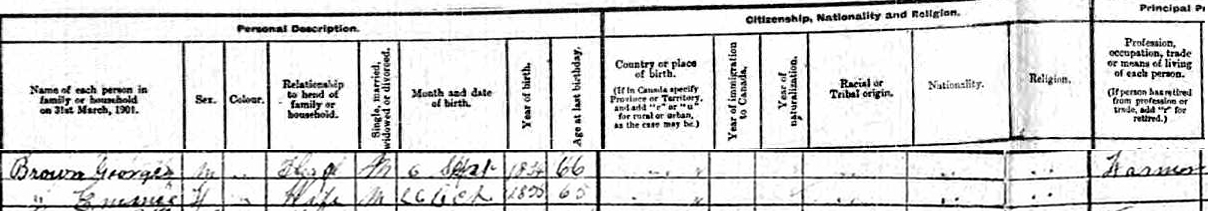 Personal Description.
Citizenship, Nationality and Religion.
Principal P
Name of each person in
family or household
on 31st March, 1901.
Sex.
Colour.
Relationship
to head of
family or
household.
Single, married,
widowed or divorced.
Month and date
of birth.
Year of birth.
Age at last birthday.
Country or place
of birth.
(If in Canada specify
Province or Territory,
and add "r" or "u"
for rural or urban,
as the case may be.)
Year of immigration
to Canada.
Year of
naturalization.
Racial or
Tribal origin.
Nationality.
Religion.
Profession,
occupation, trade
or means of living
of each person.
(If person has retired
from profession or
trade, add "r" for
retired.)
Brown George M Head M 6 Sept 1834 66 " Farmer
" F Wife M 1835 65 "